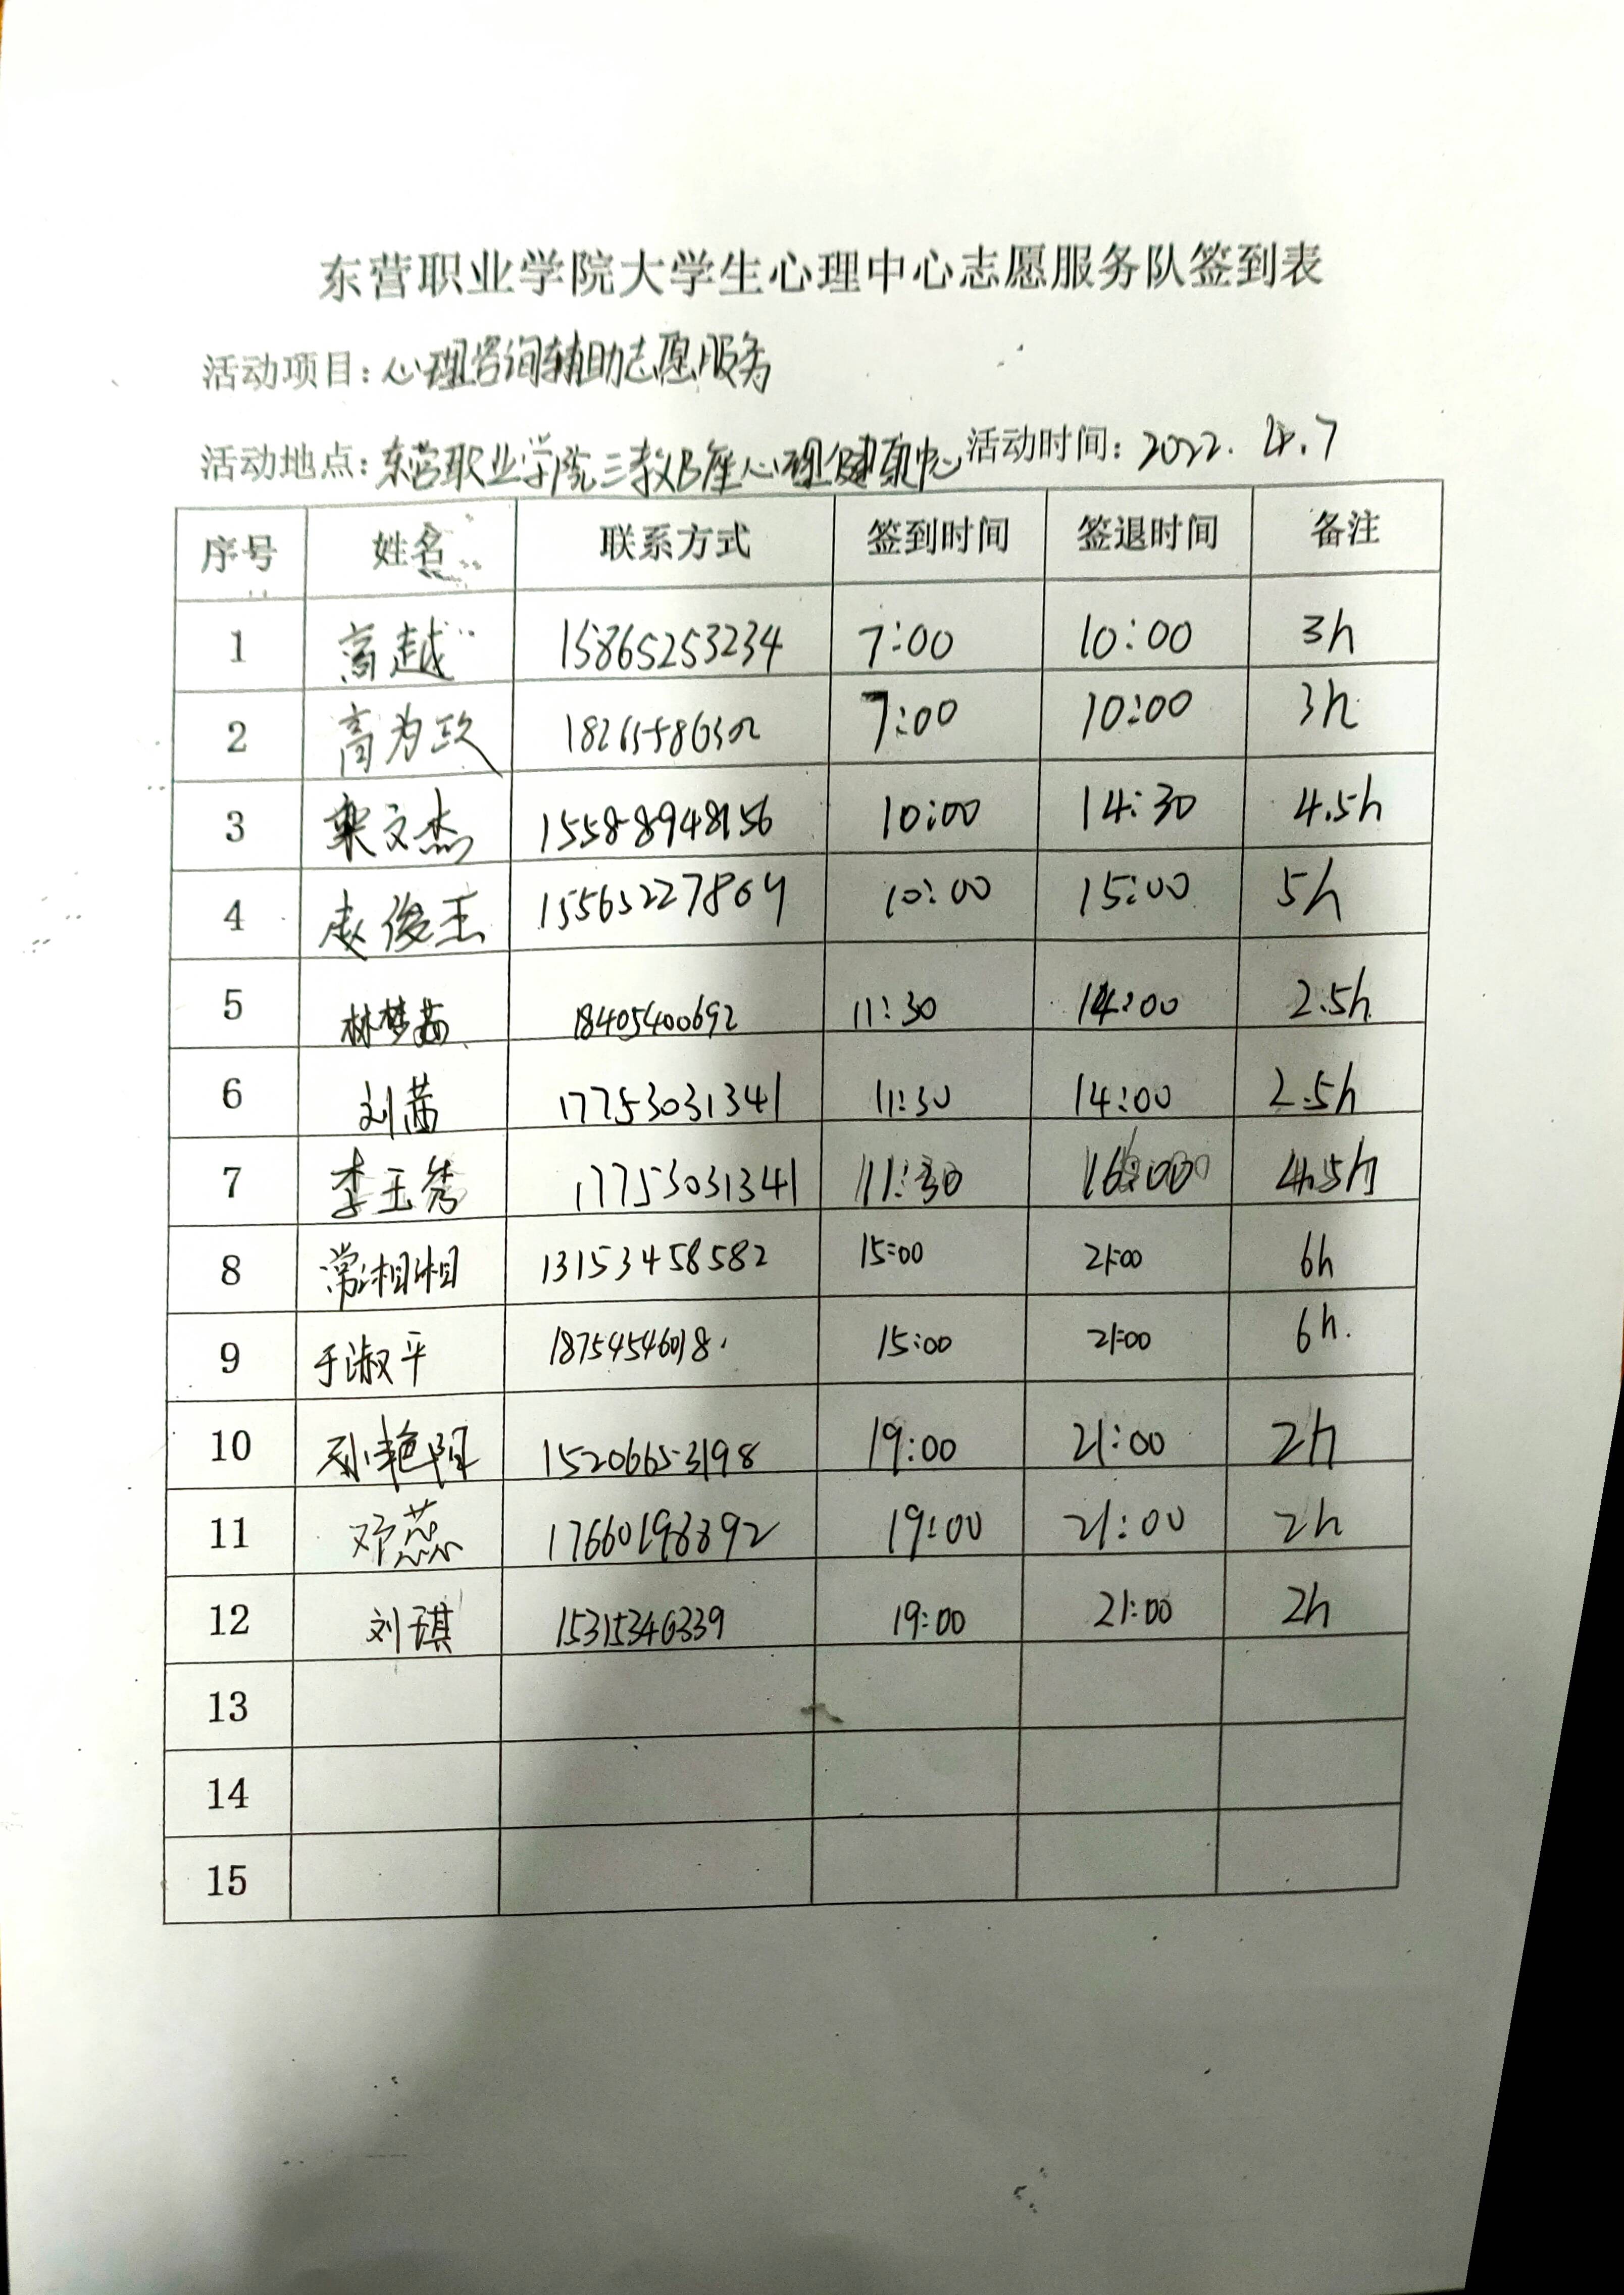 东营职业学院大学生心理中心志愿服务队签到表
活动项目:心理咨询辅助志愿服务
活动地点:东营职业学院三教B座心理健康中心 活动时间:2022.4.7
序号 姓名 联系方式 签到时间 签退时间 备注
1 高越 15865253234 7:00 10:00 3h
2 高为政 7:00 10:00 3h
3 栾文杰 15588948156 10:00 14:30 4.5h
4 赵俊 10:00 15:00 5h
5 林梦茹 18405400692 11:30 14:00 2.5h
6 刘茜 17753031341 11:30 14:00 2.5h
7 李玉秀 17753031341 11:30 16:00 4.5h
8 常湘湘 13153458582 15:00 21:00 6h
9 于淑平 18754546018 15:00 21:00 6h.
10 孙艳阳 15206653198 19:00 21:00 2h
11 邓蕊 17660198892 19:00 21:00 2h
12 刘琪 15315346339 19:00 21:00 2h
13
14
15